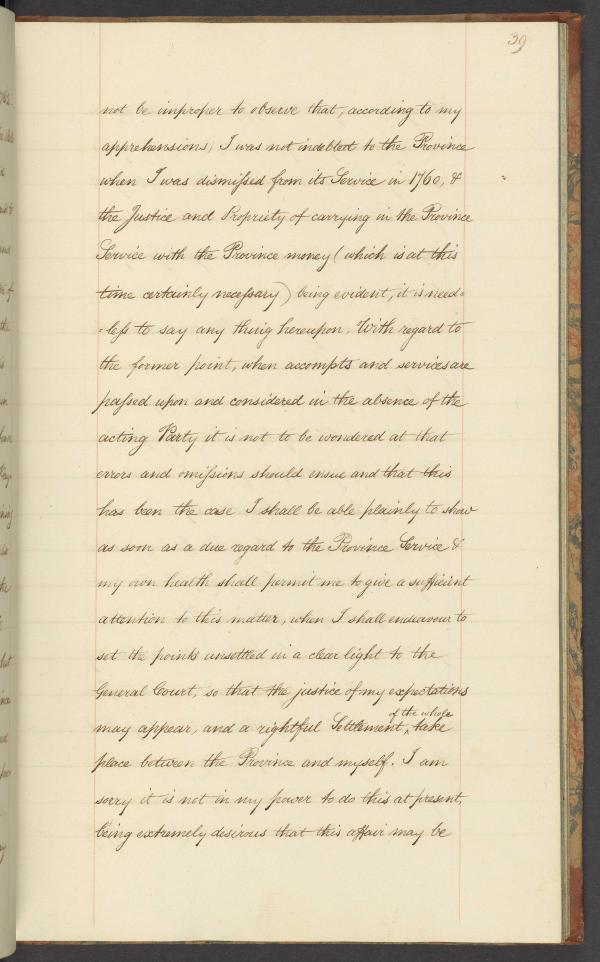 39
not be improper to observe that, according to my
apprehensions, I was not indebted to the Province
when I was dismissed from its Service in 1760, &
the Justice and Propriety of carrying in the Province
Service with the Province money (which is at this
time certainly necessary) being evident, it is need-
-less to say any thing hereupon. With regard to
the former point, when accompts and services are
passed upon and considered in the absence of the
acting Party it is not to be wondered at that
errors and omissions should ensue and that this
has been the case I shall be able plainly to show
as soon as a due regard to the Province Service &
my own health shall permit me to give a sufficient
attention to this matter, when I shall endeavour to
set the points unsettled in a clear light to the
General Court, so that the justice of my expectations
may appear, and a rightful Settlement ^ of the whole take
place between the Province and myself. I am
sorry it is not in my power to do this at present,
being extremely desirous that this affair may be